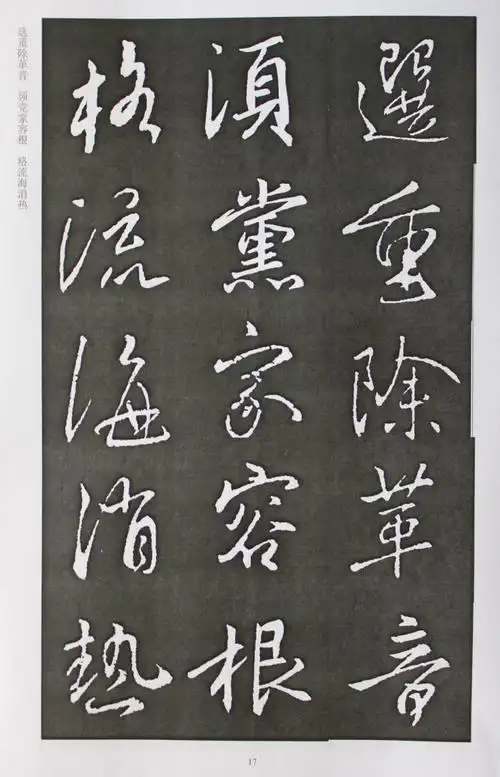 選重除革音
須黨家容根
格流海消熱
选重除革音 须党家容根 格流海消热
17